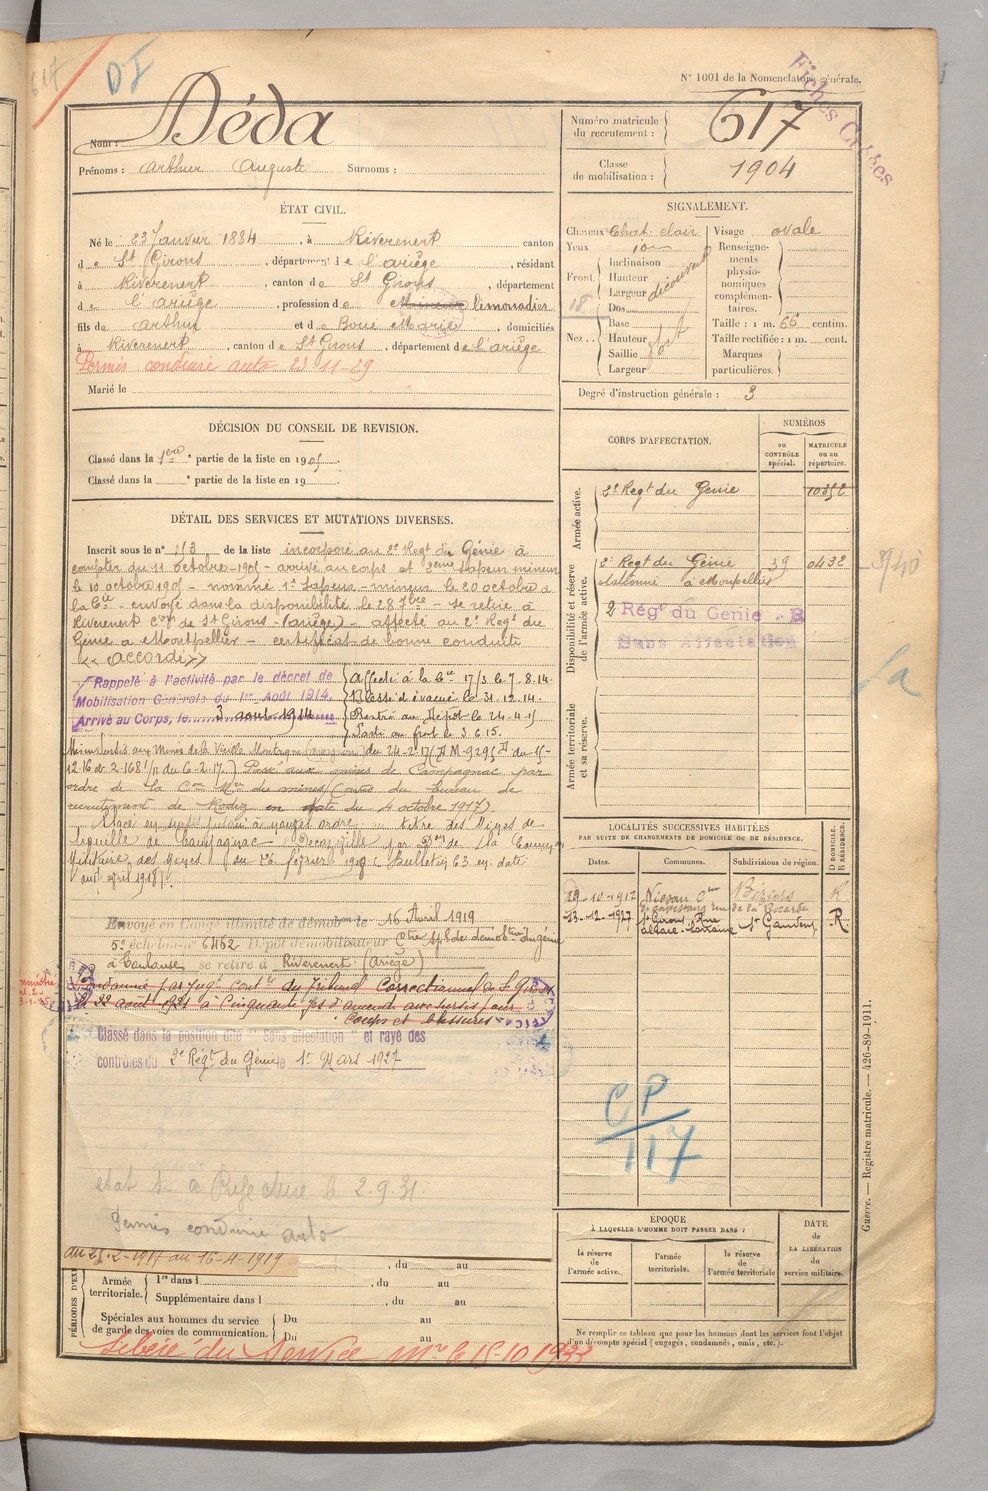 617
D I
N° 1001 de la Nomenclature générale.
Fiches Croses
Nom : Déda
Prénoms : Arthur Auguste Surnoms :
Numéro matricule du recrutement : 617
Classe de mobilisation : 1904
ÉTAT CIVIL.
Né le 23 Janvier 1884, à Rivèrenert canton
de St Girons, département de l'ariège, résidant
à Rivèrenert, canton de St Girons, département
de l'ariège, profession de Mineur limonadier
fils de Arthur et de Boué Marie, domiciliés
à Rivèrenert, canton de St Girons, département de l'ariège
Permis conduire auto 23-11-29
Marié le
SIGNALEMENT.
Cheveux Chat. clair
Yeux
Front Inclinaison
Hauteur
Largeur découvert
18
Nez Dos
Base
Hauteur fort
Saillie
Largeur
Visage ovale
Renseignements physionomiques complémentaires.
Taille : 1 m. 66 centim.
Taille rectifiée : 1 m. cent.
Marques particulières.
Degré d'instruction générale : 3
DÉCISION DU CONSEIL DE REVISION.
Classé dans la 1ère partie de la liste en 1905.
Classé dans la ° partie de la liste en 19
DÉTAIL DES SERVICES ET MUTATIONS DIVERSES.
Inscrit sous le n° 113 de la liste incorporé au 2e Regt du Génie à
compter du 11 octobre 1905 – arrivé au corps et 2ème sapeur mineur
le 10 octobre 1905 – nommé 1er sapeur-mineur le 20 octobre à
la Cie – envoyé dans la disponibilité le 28 7bre – se retire à
Rivèrenert Con de St Girons (ariège) – affecté au 2e Regt du
Génie à Montpellier – certificat de bonne conduite
<< accordé >>
Rappelé à l'activité par le décret de
Mobilisation Générale du 1er Août 1914.
Arrivé au Corps, le 3 août 1914
Affecté à la Cie 17/3 le 7-8-14.
Blessé évacué le 31-12-14.
Rentré au Dépôt le 24-4-15
Parti au front le 3 6 15.
Mis en sursis aux Mines de la Vieille Montagne (aveyron) du 24-2-17
12-16 du 6-2-17.) Passé aux mines de Campagnac par
ordre de la Con Mre du mines (avis du bureau de
recrutement de Rodez en date du 4 octobre 1917).
Placé en sursis jusqu'à nouvel ordre au titre des Mines de
houille de Campagnac Decazeville par Don de la Comm on
Militaire des Mines (du 26 février 1918 Bulletin 63 en date
avril 1918).
Envoyé en Congé illimité de démobon le 16 Avril 1919
5e échelon n° 6462 Dépôt démobilisateur Ctre spl de démobtion du génie
à Toulouse se retire à Rivèrenert (Ariège)
Condamné par Jugt contre du Tribunal Correctionnel de St Girons
le 22 août 1921 à Cinquante frs d'amende avec sursis pour
Coups et blessures
Classé dans la position dite " Sans affectation " et rayé des
contrôles du 2e Régt du Génie le 1er Mars 1927
état à Préfecture le 2.9.31
Permis conduire auto
CORPS D'AFFECTATION.
NUMÉROS
au CONTRÔLE spécial.
MATRICULE ou au répertoire.
Armée active.
2e Regt du Génie
Disponibilité et réserve de l'armée active.
2e Regt du Génie 39 0432
stationné à Montpellier
2 Régt du Génie B
Sans Affectation
Armée territoriale et sa réserve.
LOCALITÉS SUCCESSIVES HABITÉES
PAR SUITE DE CHANGEMENTS DE DOMICILE OU DE RÉSIDENCE.
D DOMICILE. R RÉSIDENCE.
Dates. Communes. Subdivisions de région.
29-10-1912 Béziers R.
13-12-1927 St Girons, Rue Alsace-Lorraine St Gaudens R.
CP
117
du 25-2-1917 au 16-4-1919
, du au
PÉRIODES D'EX
Armée territoriale. 1re dans l , du au
Supplémentaire dans l , du au
Spéciales aux hommes du service de garde des voies de communication. Du au
Du au
Libéré du Service Mre le 15-10 1933
ÉPOQUE
À LAQUELLE L'HOMME DOIT PASSER DANS :
la réserve de l'armée active.
l'armée territoriale.
la réserve de l'armée territoriale
DATE de LA LIBÉRATION du service militaire.
Ne remplir ce tableau que pour les hommes dont les services font l'objet
d'un décompte spécial (engagés, condamnés, omis, etc.).
Guerre. — Registre matricule. — 426-89-1911.